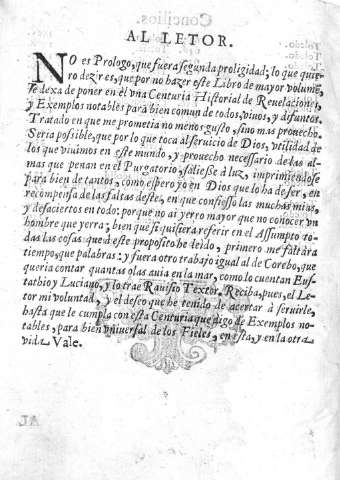 AL LETOR.
NO es Prologo, que fuera segunda proligidad; lo que quie-
ro dezir es, que por no hazer este Libro de mayor volume,
se dexa de poner en el vna Centuria Historial de Reuelaciones,
y Exemplos notables para bien comun de todos, viuos, y difuntos.
Tratado en que me prometia no menor gusto, sino mas prouecho.
Seria possible, que por lo que toca al seruicio de Dios, vtilidad de
los que viuimos en este mundo, y prouecho necessario de las al-
mas que penan en el Purgatorio, saliesse à luz, imprimiendose
para bien de tantos, como espero yo en Dios que lo ha de ser, en
recompensa de las faltas deste, en que confiesso las muchas mias,
y desaciertos en todo: porque no ai yerro mayor que no conocer vn
hombre que yerra; bien que si quisiera referir en el Assumpto to-
das las cosas que à este proposito he leido, primero me faltàra
tiempo, que palabras: y fuera otro trabajo igual al de Corebo, que
queria contar quantas olas auia en la mar, como lo cuentan Eus-
tathio y Luciano, y lo trae Rauisio Textor. Reciba, pues, el Le-
tor mi voluntad, y el deseo que he tenido de acertar à seruirle,
hasta que le cumpla con esta Centuria que digo de Exemplos no-
tables, para bien vniuersal de los Fieles, en esta, y en la otra
vida. Vale.